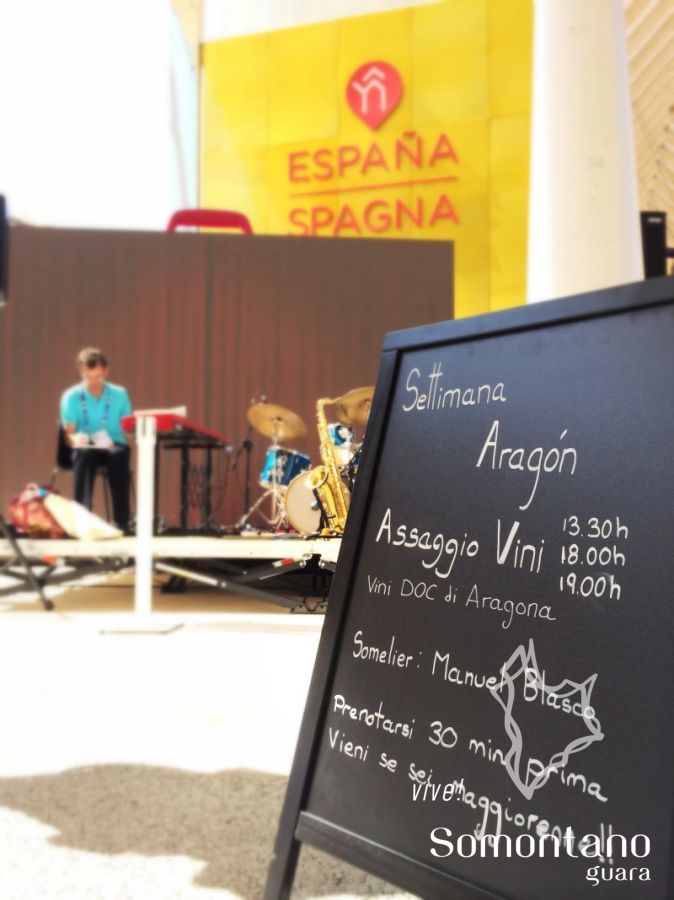 ESPAÑA
SPAGNA
Settimana
Aragón
Assaggio Vini 13.30h
18.00h
19.00h
Vini DOC di Aragona
Somelier: Manuel Blasco
Prenotarsi 30 min prima
Vieni se sei Maggiorenne!!
vive!
Somontano
guara